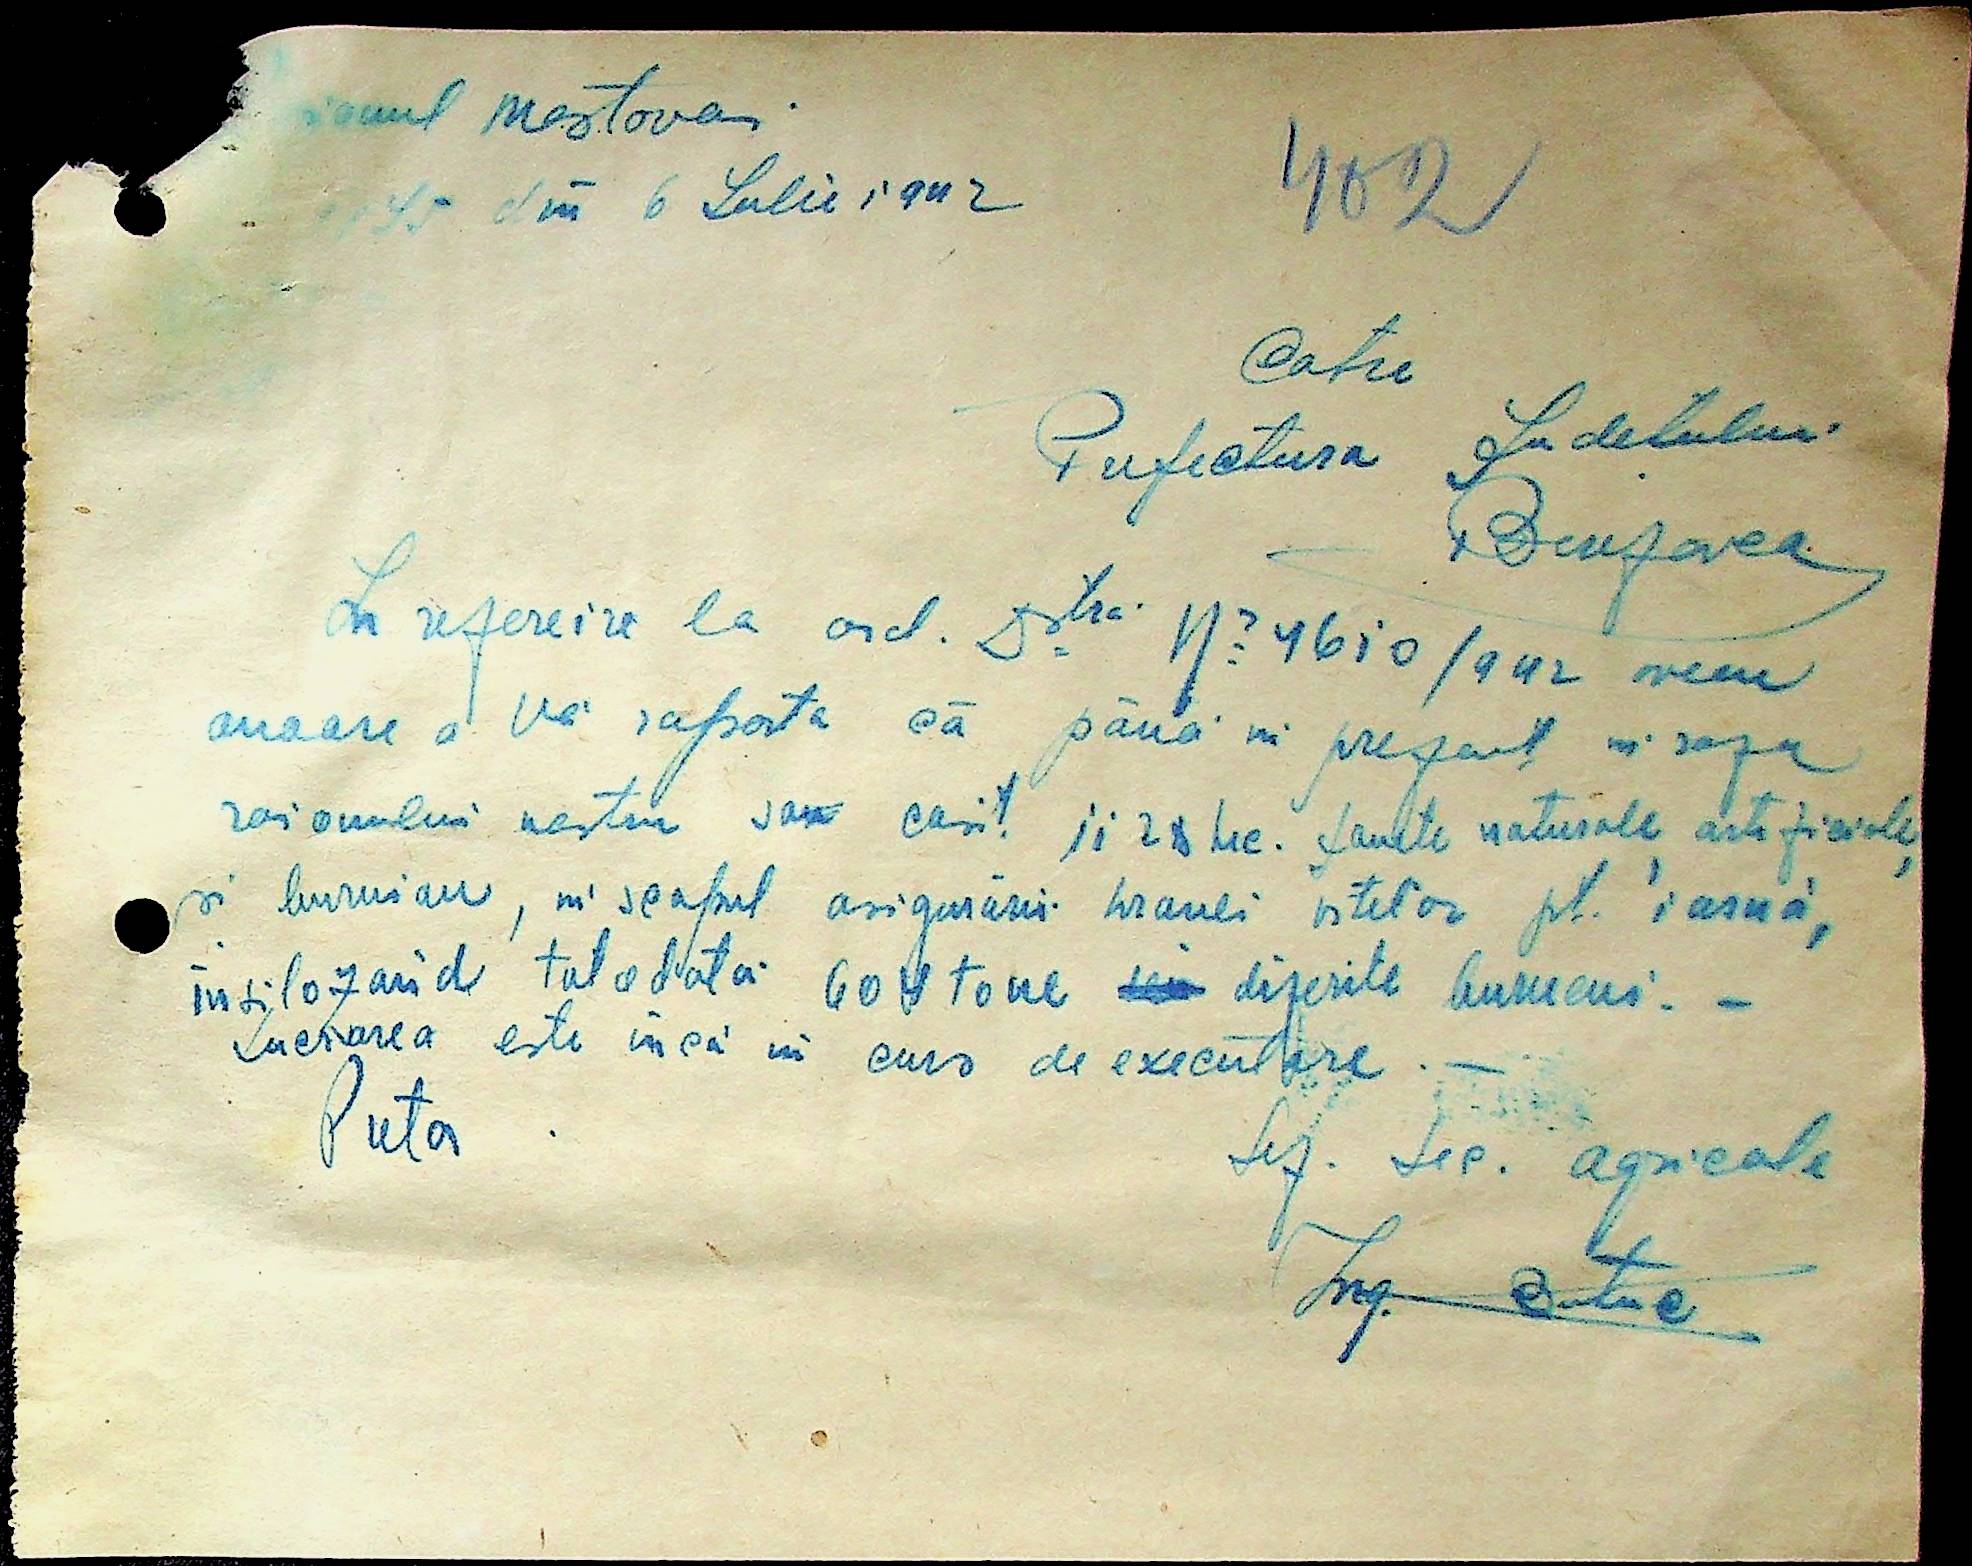 ionul Mostovoi.
din 6 Iulie 1942
402
Catre
Prefectura Judetului
Berezovca
In refereire la ord. Dstra. No 4610/942 avem
onoare a Vă raporta că până in prezent in raza
raionului nostru sau cosit 1128 hec. fanete naturale artificiale,
si buruian, in scopul asigurării hranei vitelor pt. iarnă,
însilozând totodată 604 tone diferite burueni. -
Lucrarea este încă in curs de executare. -
Pretor
Sef. Sec. agricole
Ing.